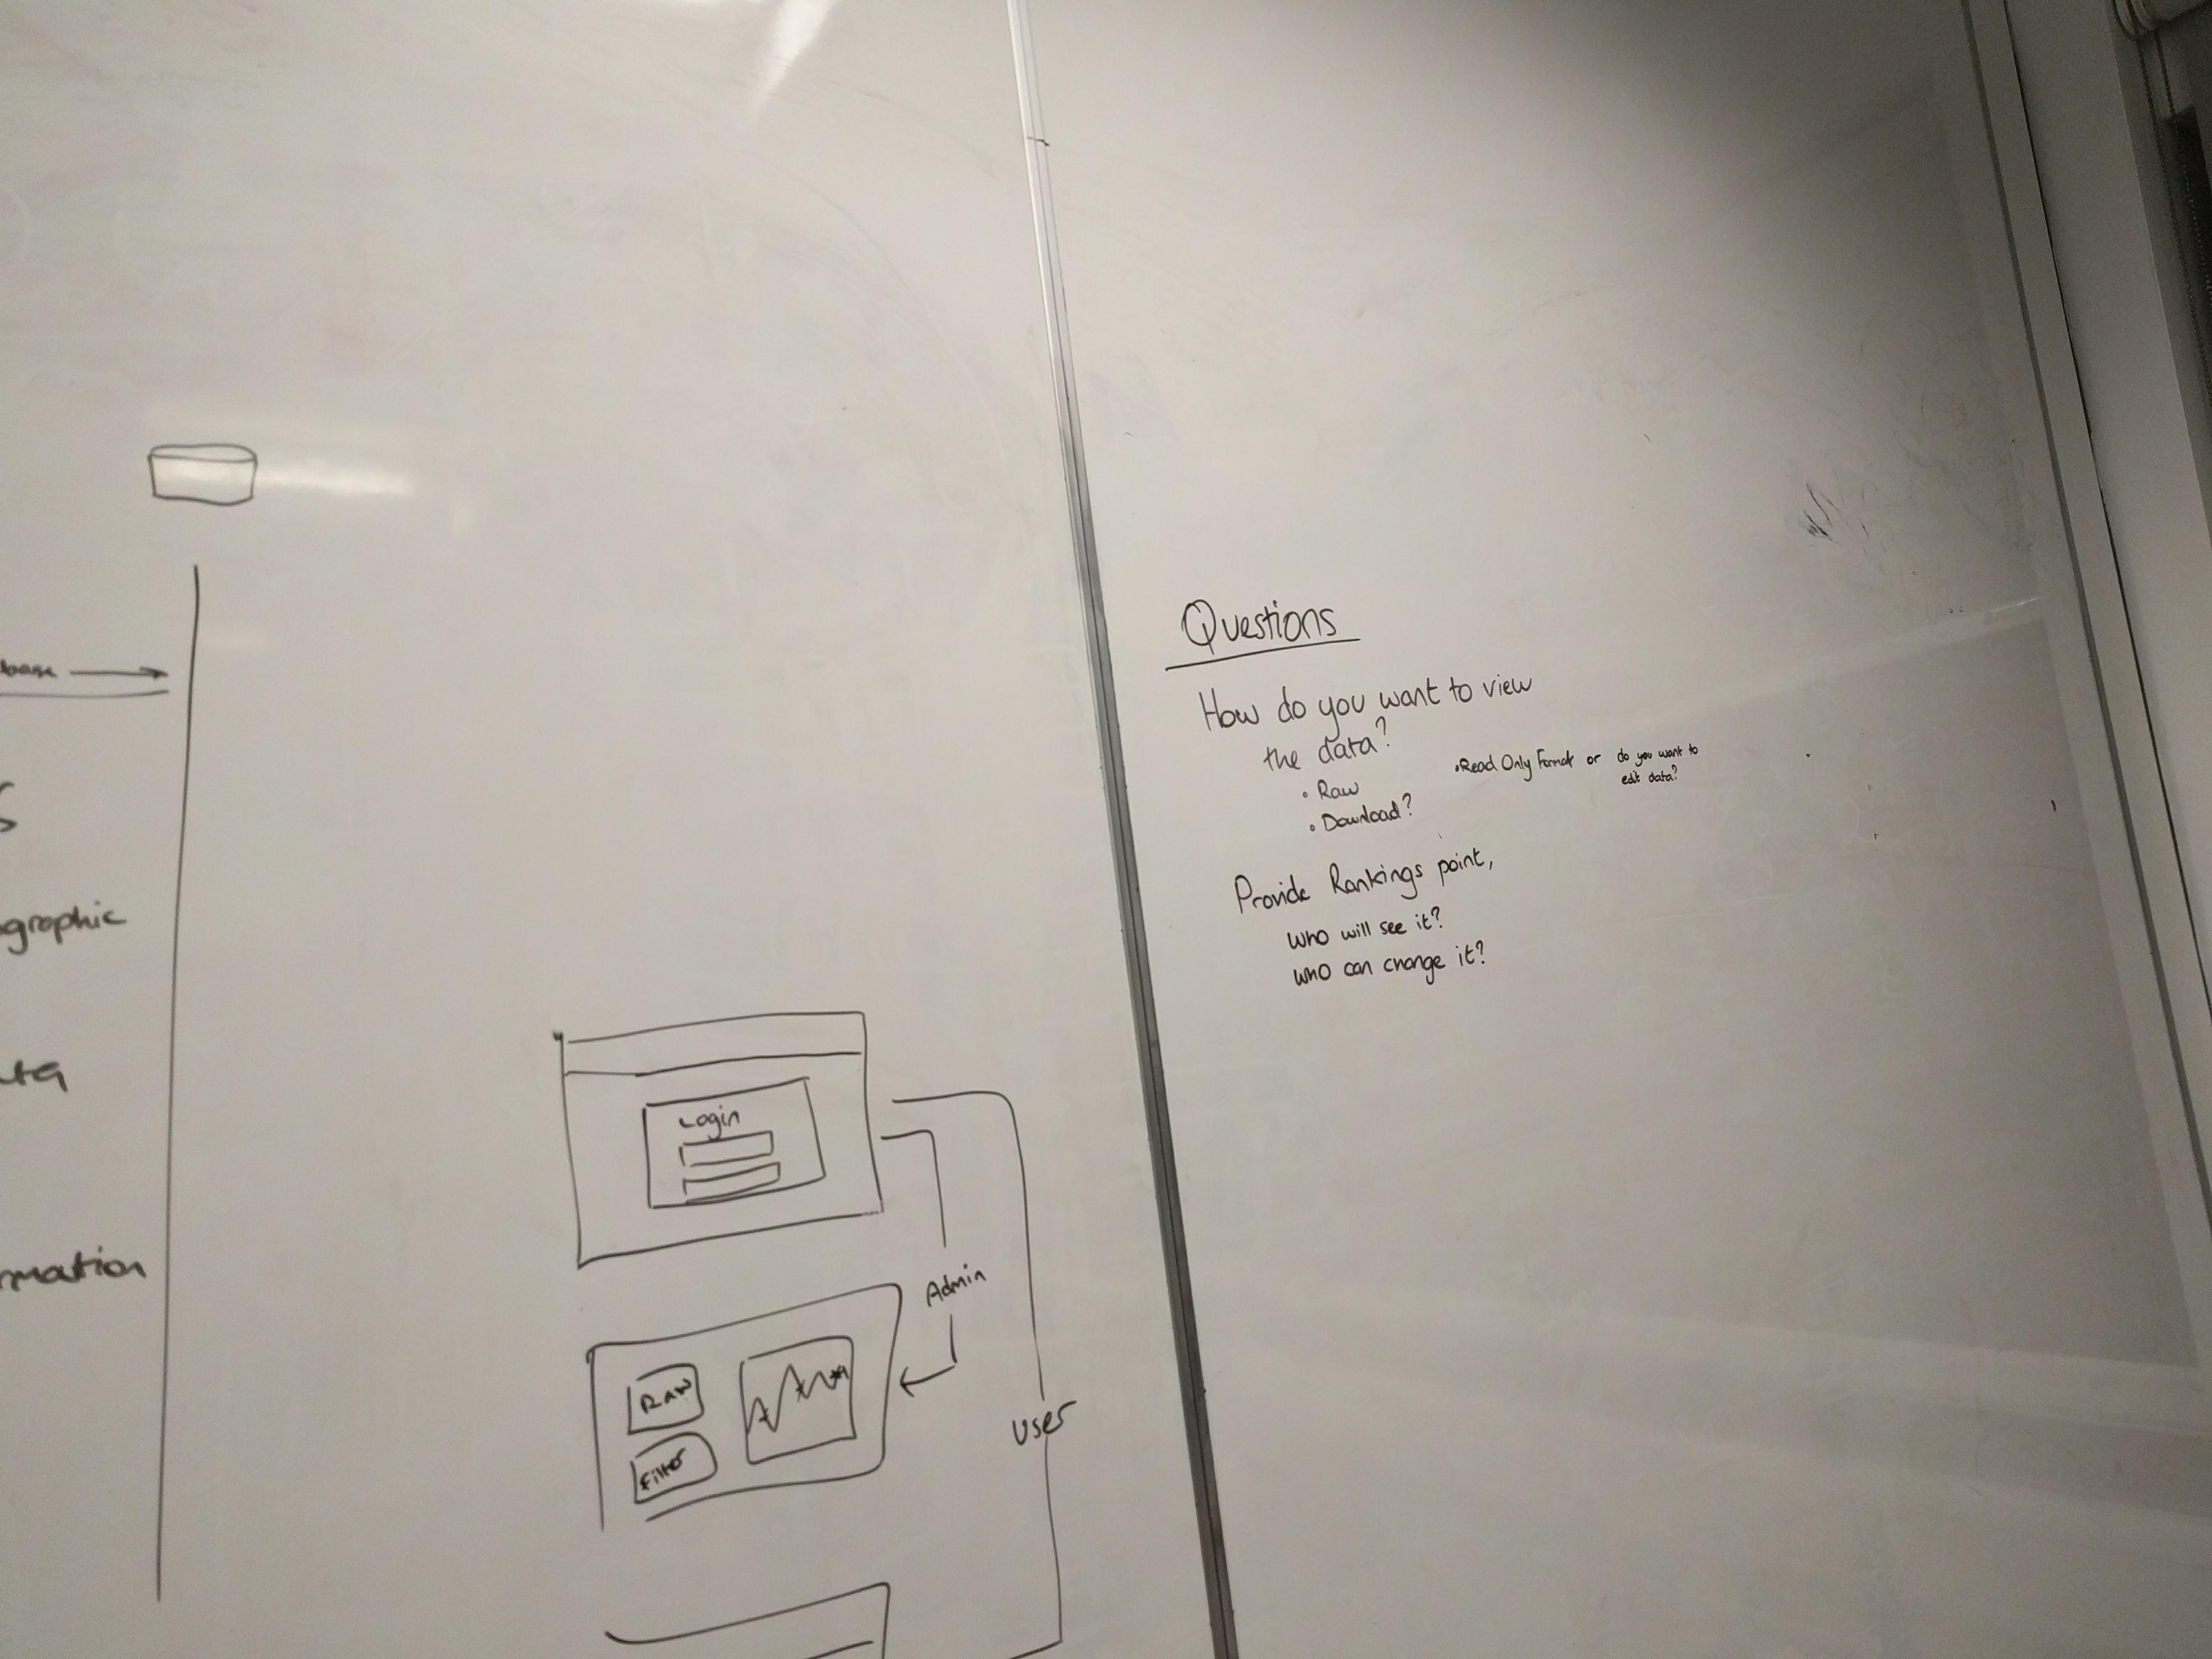 base
graphic
ata
rmation
Login
Admin
Raw
Filter
User
Questions
How do you want to view
the data?
• Raw
• Download?
• Read Only Format or do you want to
edit data?
Provide Rankings point,
who will see it?
who can change it?